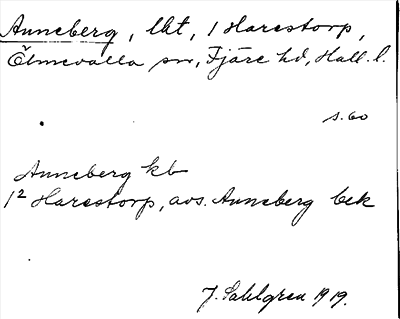 Anneberg, lht, 1 Harestorp,
Ölmevalla sn, Fjäre hd, Hall. l.
s. 60
Anneberg kb
1² Harestorp, avs. Anneberg bek
J. Sahlgren 1919.